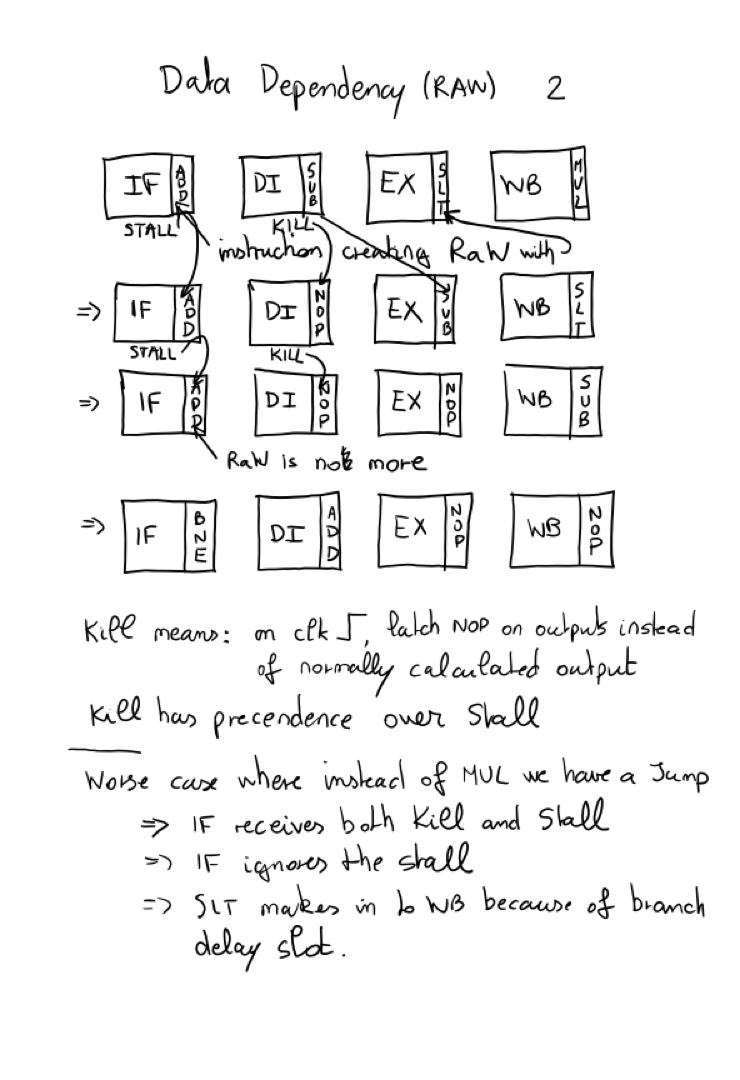 Data Dependency (RAW) 2
IF ADD DI SUB EX SLT WB MUL
STALL KILL
instruction creating RaW with
=> IF ADD DI NOP EX SUB WB SLT
STALL KILL
=> IF ADD DI NOP EX NOP WB SUB
RaW is not more
=> IF BNE DI ADD EX NOP WB NOP
Kill means: on clk ⎍, latch NOP on outputs instead
of normally calculated output
Kill has precendence over Stall
Worse case where instead of MUL we have a Jump
=> IF receives both Kill and Stall
=> IF ignores the stall
=> SLT makes in to WB because of branch
delay slot.